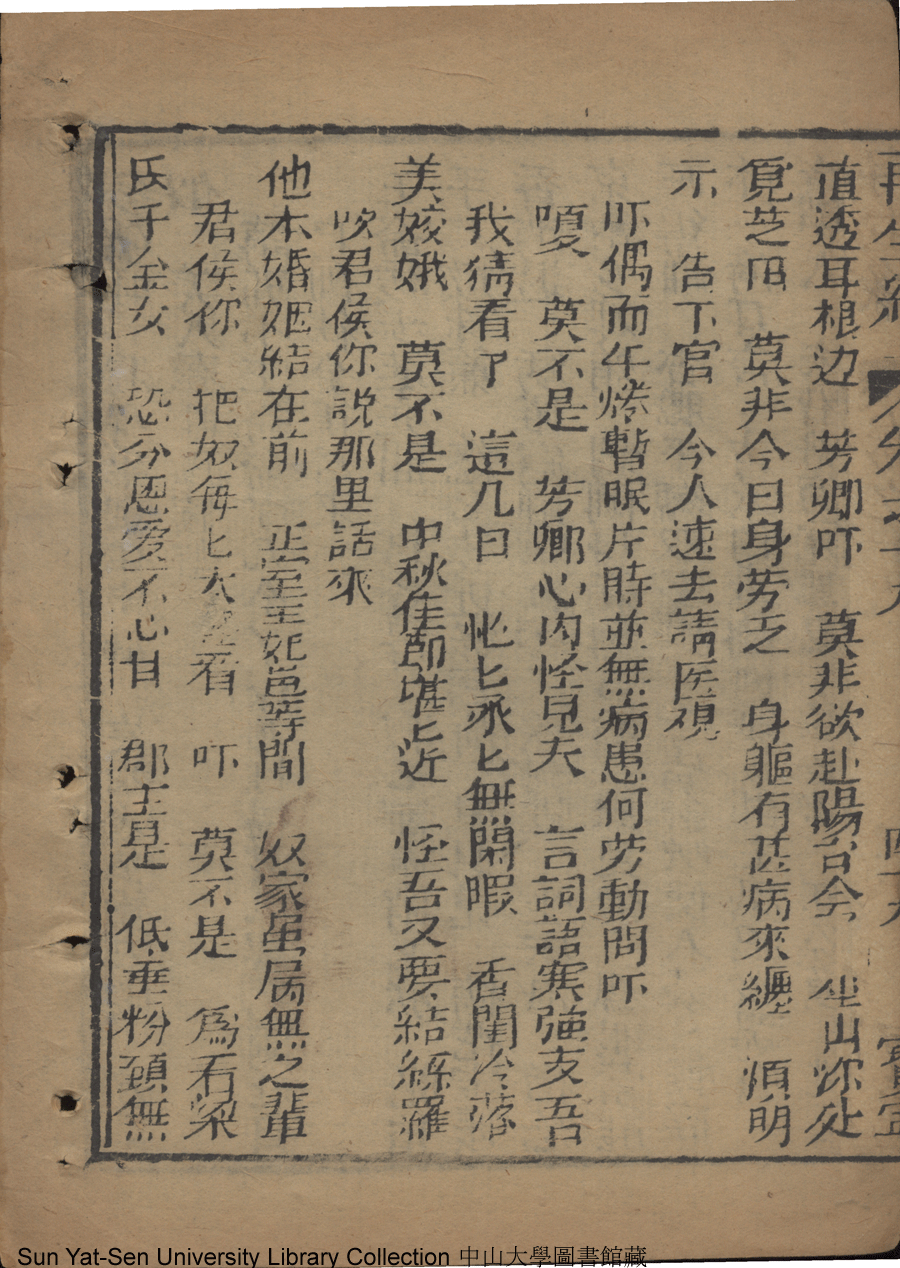 再生緣
直透耳根边 芳卿吓 莫非欲赴陽台会 坐山你处
覓芝田 莫非今日身劳乏 身軀有甚病來纏 煩明
示 告下官 令人速去請医視
吓偶而午倦暫眠片時並無病患何劳動問吓
嗄 莫不是 芳卿心内怪見夫 言詞語寒強支吾
我猜看了 這几日 忙匕承匕無閑暇 香閨冷落
美姣娥 莫不是 中秋佳節堪匕近 怪吾又要結絲羅
吹君侯你説那里話來
他本婚姻結在前 正室王妃豈等間 奴家虽居無之輩
君侯你 把奴每匕大 看 吓 莫不是 爲石梁
氏千金女 恐分恩愛不心甘 郡主是 低垂粉頸無
Sun Yat-Sen University Library Collection 中山大學圖書館藏